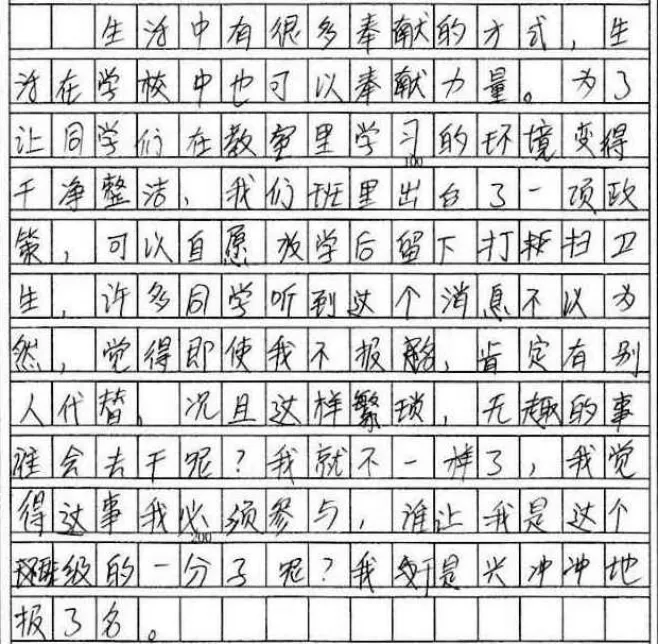 生活中有很多奉献的方式，生
活在学校中也可以奉献力量。为了
让同学们在教室里学习的环境变得
100
干净整洁，我们班里出台了一项政
策，可以自愿放学后留下打扫卫
生，许多同学听到这个消息不以为
然，觉得即使我不报名，肯定有别
人代替，况且这样繁琐，无趣的事
谁会去干呢？我就不一样了，我觉
得这事我必须参与，谁让我是这个
200
班级的一分子呢？我于是兴冲冲地
报了名。